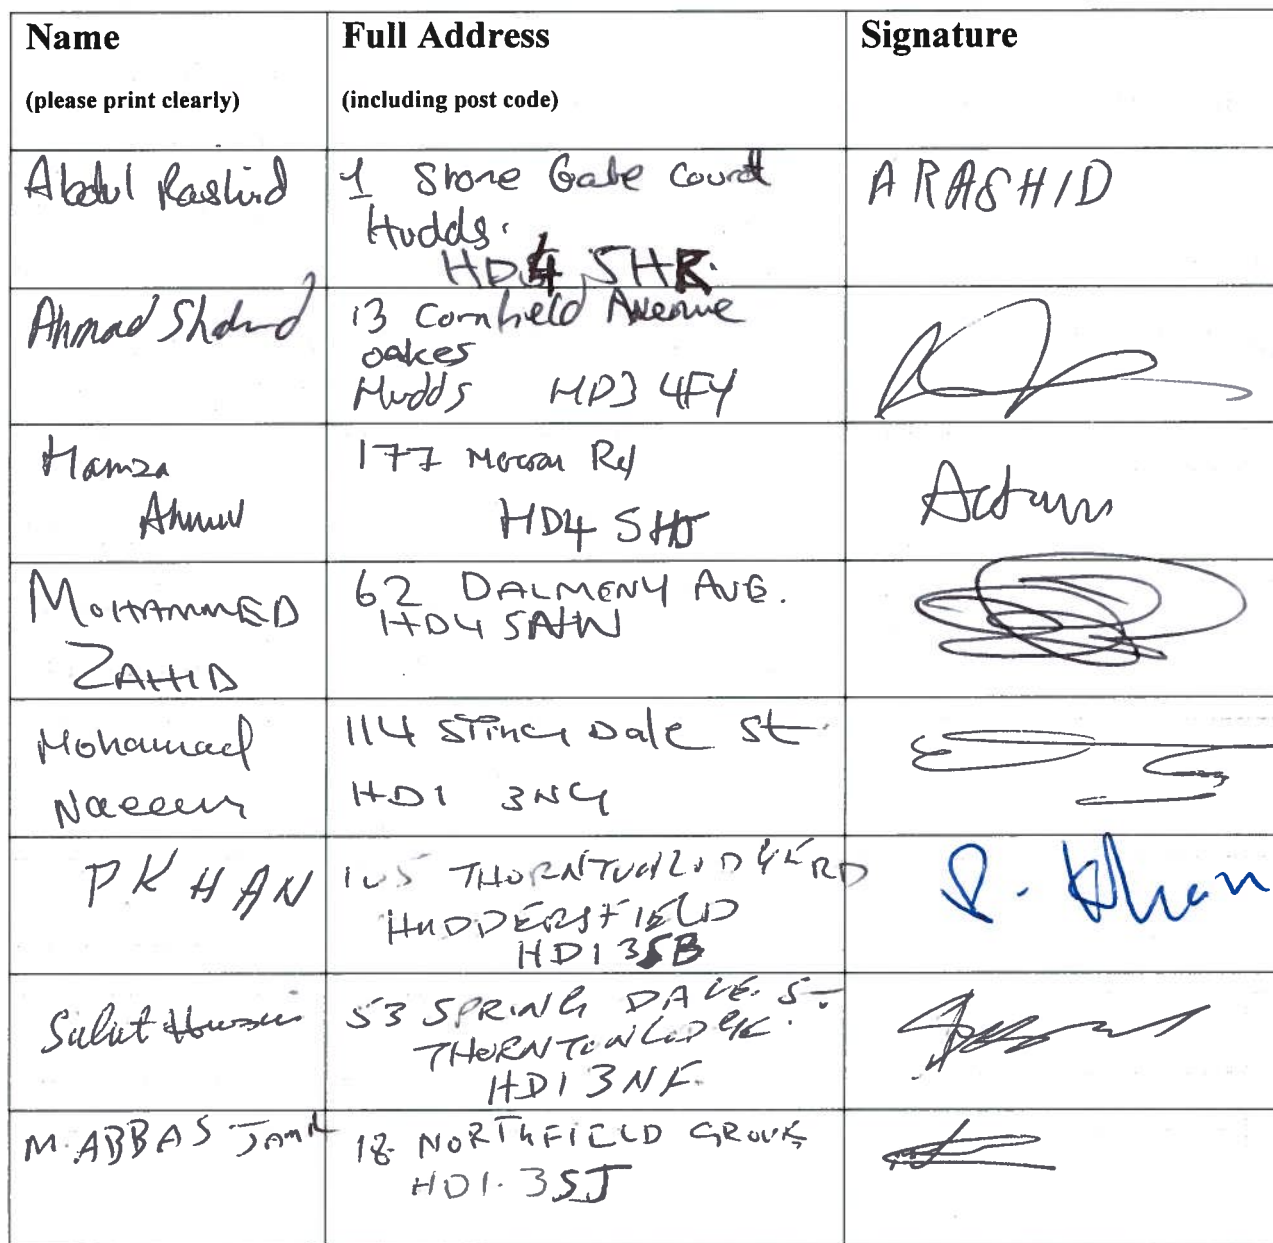 Name
Full Address
Signature
(please print clearly)
(including post code)
Abdul Rashid
1 Stone Gate Court
Hudds.
HD4 5HR.
A RASHID
Ahmad Shahid
13 Cornfield Avenue
oakes
Hudds HD3 4FY
Hamza
Ahmed
177 Rd
HD4 5HJ
MOHAMMED
ZAHID
62 DALMENY AVE.
HD4 5NW
Mohamad
Naeem
114 Dale St.
HD1 3NG
P KHAN
105 THORNTON LODGE RD
HUDDERSFIELD
HD1 3SB
P. Khan
53 SPRING DALE ST
THORNTON LODGE.
HD1 3NF.
M. ABBAS
18 NORTHFIELD GROVE
HD1. 3SJ